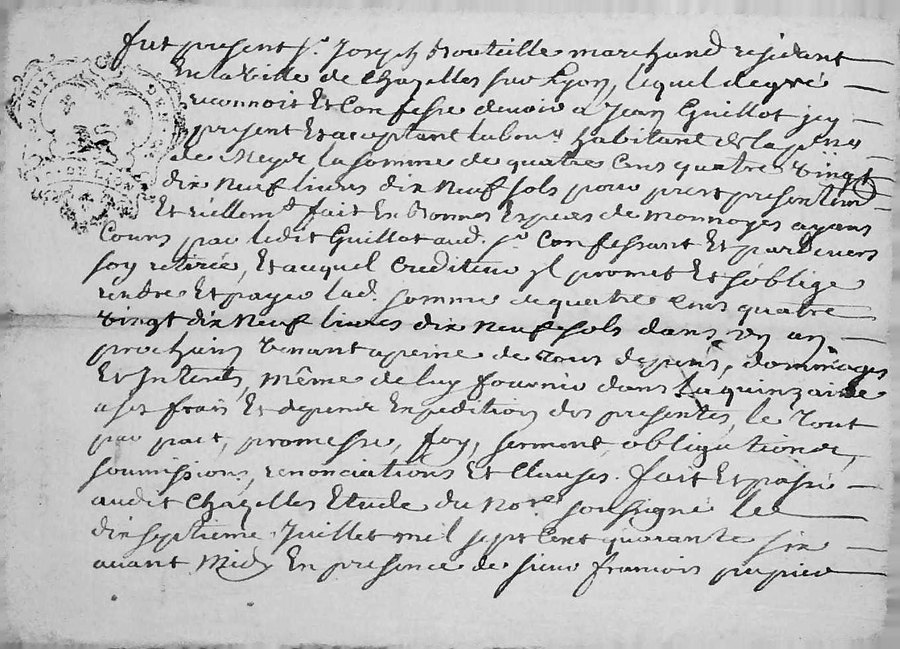 fut present Sr. Joseph Bouteille marchand residant
En la Ville de Chazelles sur Lyon, lequel de gré
reconnoit Et Confesse devoir a Jean Guillot icy
present Et acceptant labour. habitant de la par.
de Meys la somme de quatre Cens quatre Vingt
dix Neuf livres dix Neuf sols pour prest presentem.
Et réellemt. fait En bonnes Especes de monnoyes ayans
Cours par ledit Guillot aud. Sr. Confessant Et par devers
soy retirée, Et auquel Crediteur jl promet Et s'oblige
rendre Et payer lad. somme de quatre Cens quatre
Vingt dix Neuf livres dix Neuf sols dans un an
prochain Venant a peine de tous depens, dommages
Et Interets, même de luy fournir dans la quinzaine
a ses frais Et depens Expedition des presentes, le Tout
par pact, promesse, foy, serment, obligation,
soumissions, renonciations Et Clauses. fait Et passé
audit Chazelles Etude du Nore. soussigné le
dix septieme Juillet mil sept Cent quarante six
avant Midy En presence de sieur francois pupier
HUIT DEN
DE LION